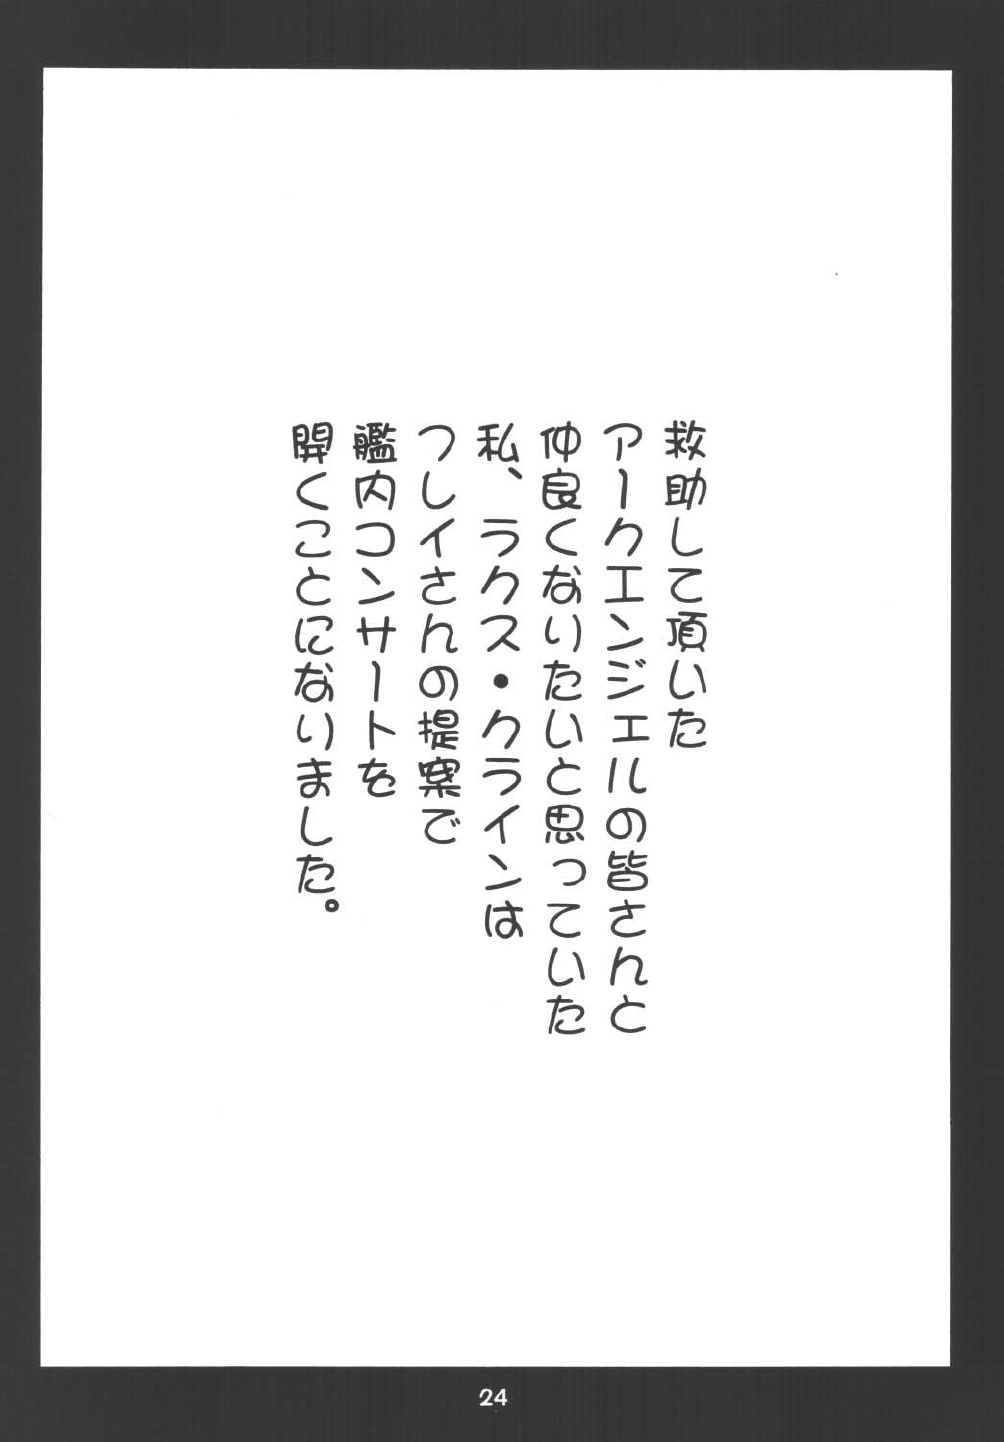 救助して頂いた
アークエンジェルの皆さんと
仲良くなりたいと思っていた
私、ラクス・クラインは
フレイさんの提案で
艦内コンサートを
開くことになりました。
24